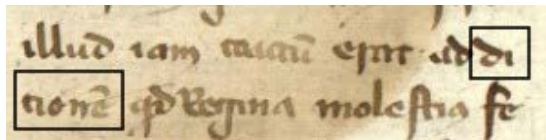 illud iam tractū erat ad di
tionē qd Regina molestia fe